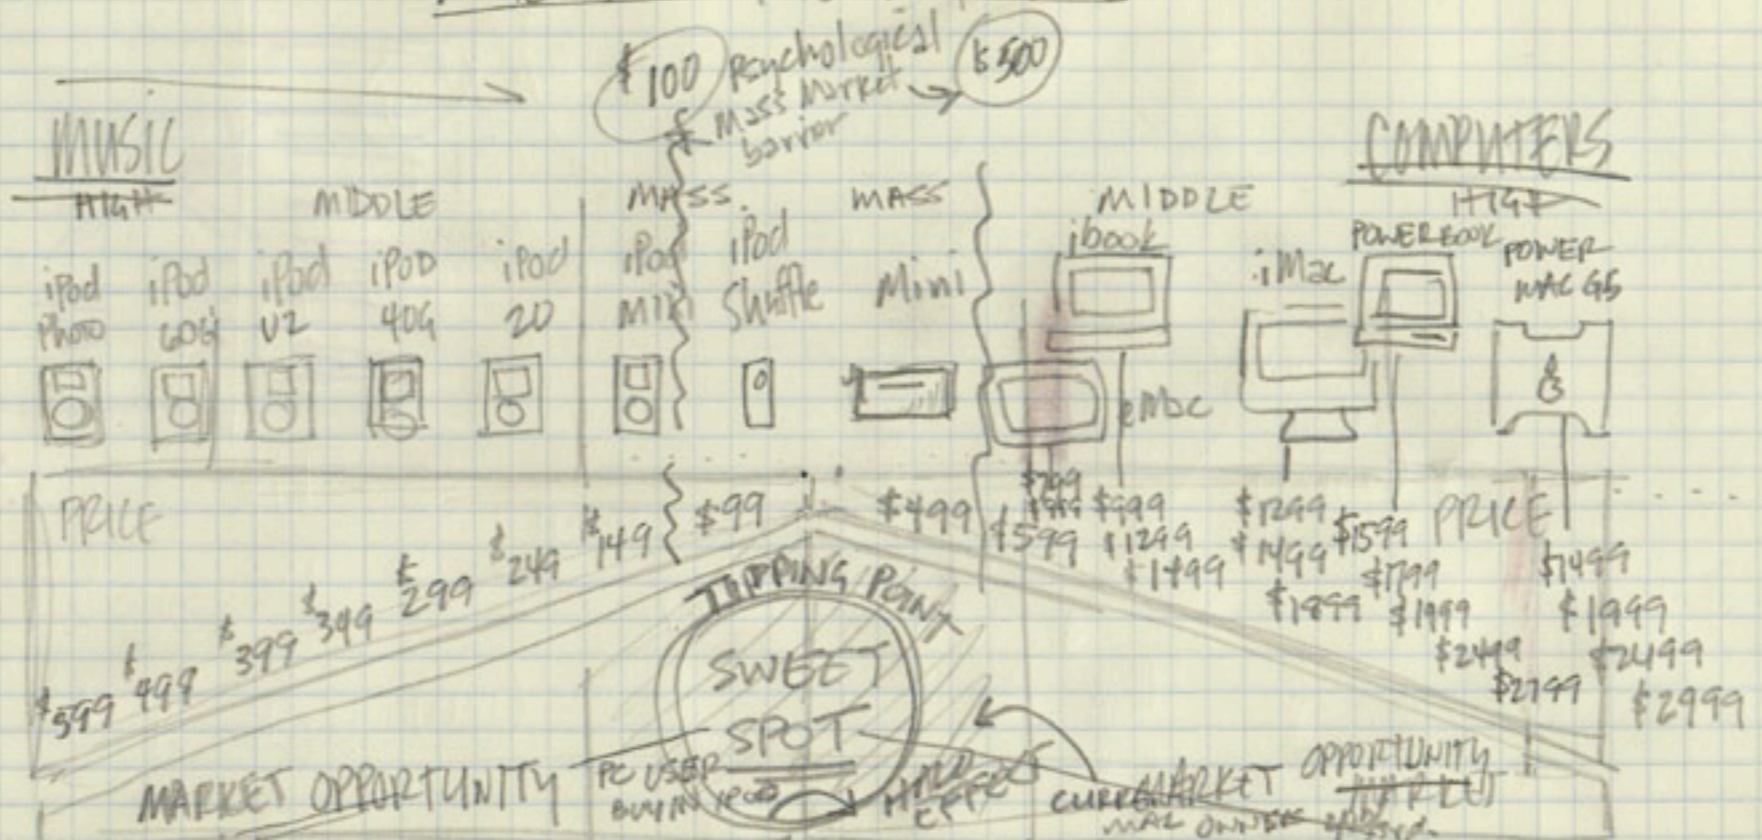 $100 psychological $500
mass market
barrier
MUSIC
COMPUTERS
HIGH MIDDLE MASS MASS MIDDLE HIGH
iPod Photo
iPod 60G
iPod U2
iPOD 40G
iPod 20
iPod Mini
iPod Shuffle
Mini
ibook
eMac
iMac
POWERBOOK
POWER MAC G5
PRICE
$599 $499 $399 $349 $299 $249 $149 $99 $499
$799
$599
$999
$1299
$1499
$1299
$1499
$1899
$1599
$1799
$1999
$2499
$2799
PRICE
$1499
$1999
$2499
$2999
TIPPING POINT
SWEET
SPOT
MARKET OPPORTUNITY
PC USER
BUY IN iPOD
HALO
EFFECT
MARKET OPPORTUNITY
MARKET
MAC OWNER